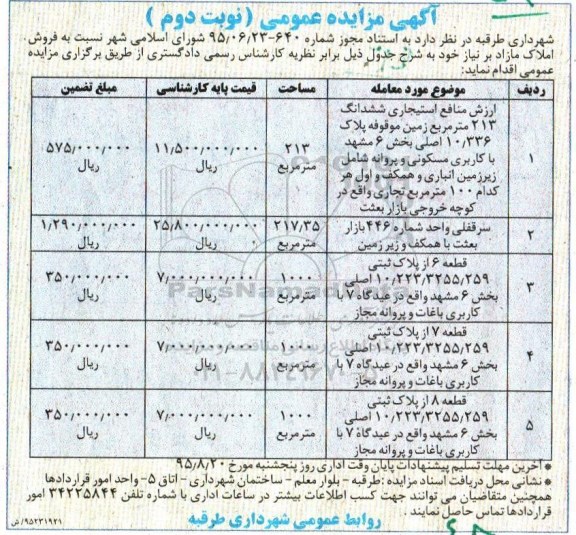 آگهی مزایده عمومی (نوبت دوم)
شهرداری طرقبه در نظر دارد به استناد مجوز شماره ۶۴۰-۹۵/۰۶/۲۳ شورای اسلامی شهر نسبت به فروش
املاک مازاد بر نیاز خود به شرح جدول ذیل برابر نظریه کارشناس رسمی دادگستری از طریق برگزاری مزایده
عمومی اقدام نماید:
ردیف موضوع مورد معامله مساحت قیمت پایه کارشناسی مبلغ تضمین
ارزش منافع استیجاری ششدانگ
۲۱۳ مترمربع زمین موقوفه پلاک
۱۰/۳۳۶ اصلی بخش ۶ مشهد
با کاربری مسکونی و پروانه شامل
زیرزمین انباری و همکف و اول هر
کدام ۱۰۰ مترمربع تجاری واقع در
کوچه خروجی بازار بعثت
۱
۲۱۳
مترمربع
۱۱/۵۰۰/۰۰۰/۰۰۰
ریال
۵۷۵/۰۰۰/۰۰۰
ریال
۲
سرقفلی واحد شماره ۴۴۶ بازار
بعثت با همکف و زیر زمین
۲۱۷/۳۵
مترمربع
۲۵/۸۰۰/۰۰۰/۰۰۰
ریال
۱/۲۹۰/۰۰۰/۰۰۰
ریال
۳
قطعه ۶ از پلاک ثبتی
۱۰/۲۲۳/۳۲۵۵/۲۵۹ اصلی
بخش ۶ مشهد واقع در عیدگاه ۷ با
کاربری باغات و پروانه مجاز
۱۰۰۰
مترمربع
۷/۰۰۰/۰۰۰/۰۰۰
ریال
۳۵۰/۰۰۰/۰۰۰
ریال
۴
قطعه ۷ از پلاک ثبتی
۱۰/۲۲۳/۳۲۵۵/۲۵۹ اصلی
بخش ۶ مشهد واقع در عیدگاه ۷ با
کاربری باغات و پروانه مجاز
۱۰۰۰
مترمربع
۷/۰۰۰/۰۰۰/۰۰۰
ریال
۳۵۰/۰۰۰/۰۰۰
ریال
۵
قطعه ۸ از پلاک ثبتی
۱۰/۲۲۳/۳۲۵۵/۲۵۹ اصلی
بخش ۶ مشهد واقع در عیدگاه ۷ با
کاربری باغات و پروانه مجاز
۱۰۰۰
مترمربع
۷/۰۰۰/۰۰۰/۰۰۰
ریال
۳۵۰/۰۰۰/۰۰۰
ریال
● آخرین مهلت تسلیم پیشنهادات پایان وقت اداری روز پنجشنبه مورخ ۹۵/۸/۲۰
● نشانی محل دریافت اسناد مزایده: طرقبه - بلوار معلم - ساختمان شهرداری - اتاق ۵- واحد امور قراردادها
همچنین متقاضیان می توانند جهت کسب اطلاعات بیشتر در ساعات اداری با شماره تلفن ۳۴۲۲۵۸۴۴ امور
قراردادها تماس حاصل نمایند.
روابط عمومی شهرداری طرقبه
۹۵۲۳۱۹۲۱/ش
ParsNamadData